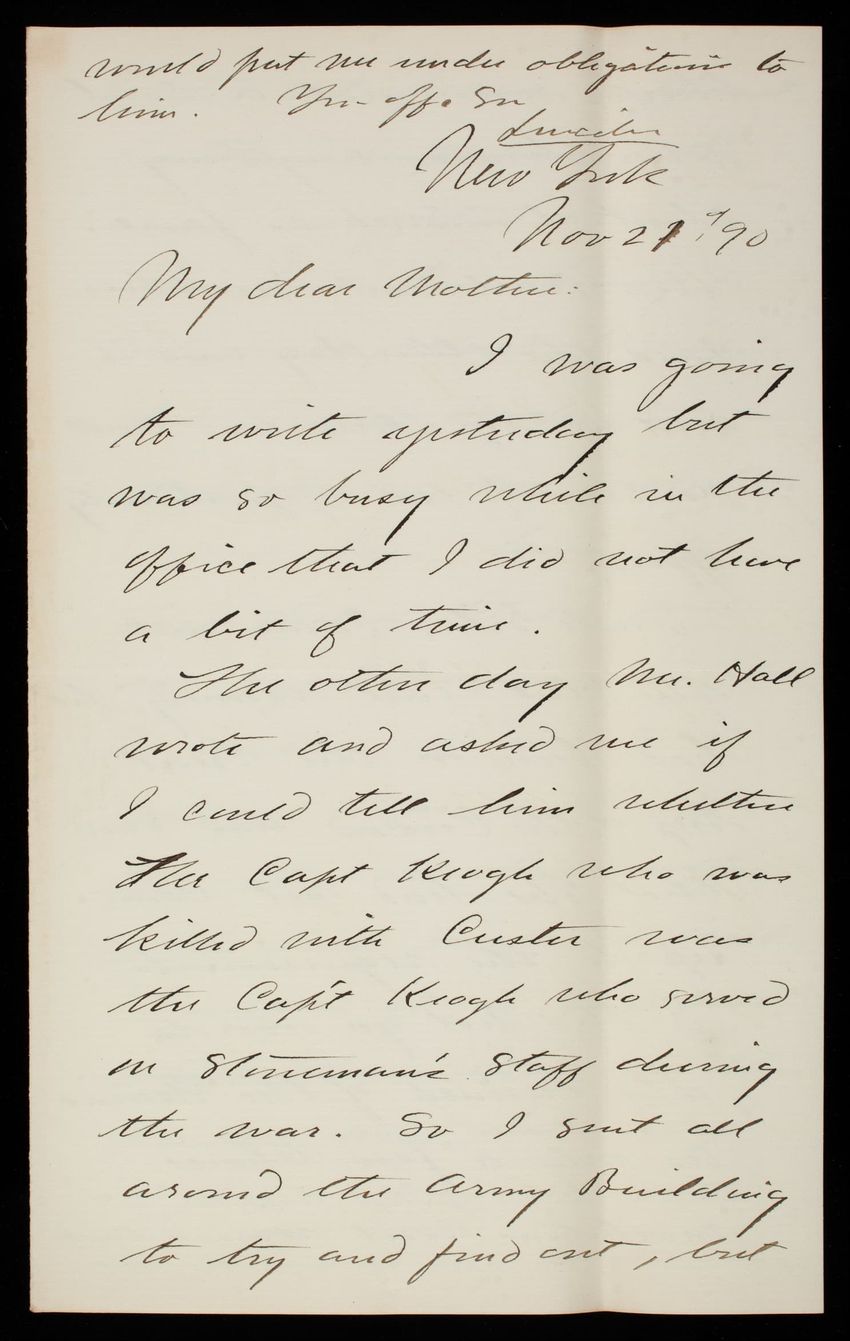 would put me under obligations to
him. Yr. aff. Son
Lincoln
New York
Nov 21st 90
My dear Mother:
I was going
to write yesterday but
was so busy while in the
office that I did not have
a bit of time.
The other day Mr. Hall
wrote and asked me if
I could tell him whether
the Capt Keogh who was
killed with Custer was
the Cap't Keogh who served
on Stoneman's staff during
the war. So I sent all
around the Army Building
to try and find out, but